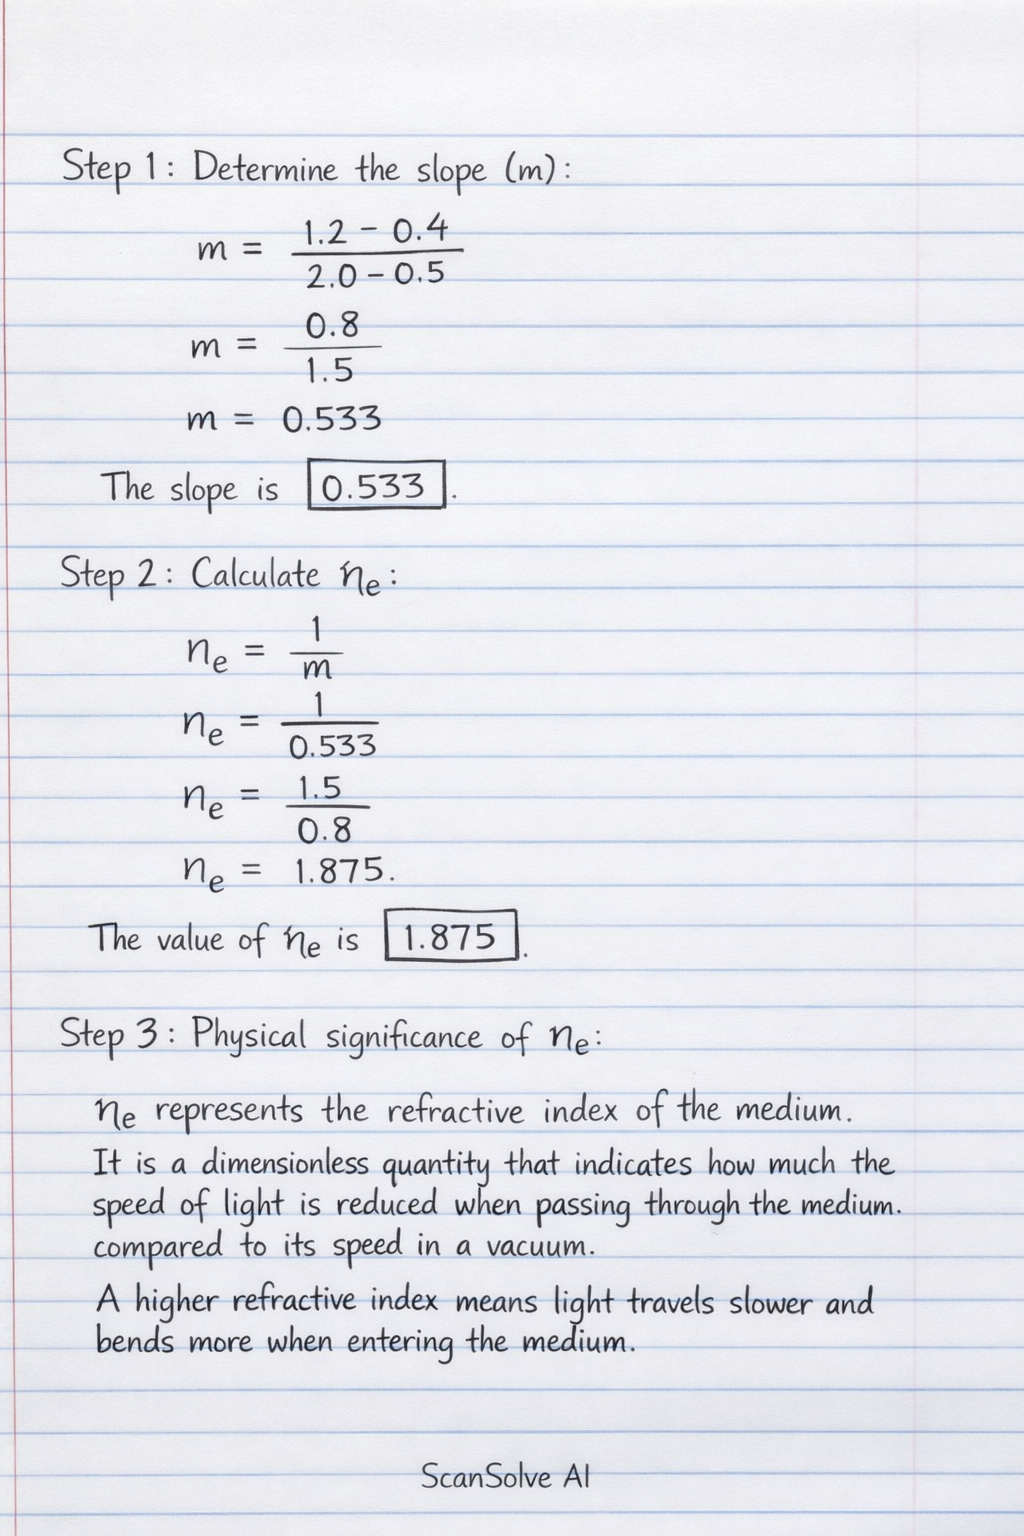 Step 1: Determine the slope (m):
m = (1.2 - 0.4) / (2.0 - 0.5)
m = 0.8 / 1.5
m = 0.533
The slope is 0.533.
Step 2: Calculate ne:
ne = 1 / m
ne = 1 / 0.533
ne = 1.5 / 0.8
ne = 1.875.
The value of ne is 1.875.
Step 3: Physical significance of ne:
ne represents the refractive index of the medium.
It is a dimensionless quantity that indicates how much the
speed of light is reduced when passing through the medium.
compared to its speed in a vacuum.
A higher refractive index means light travels slower and
bends more when entering the medium.
ScanSolve AI